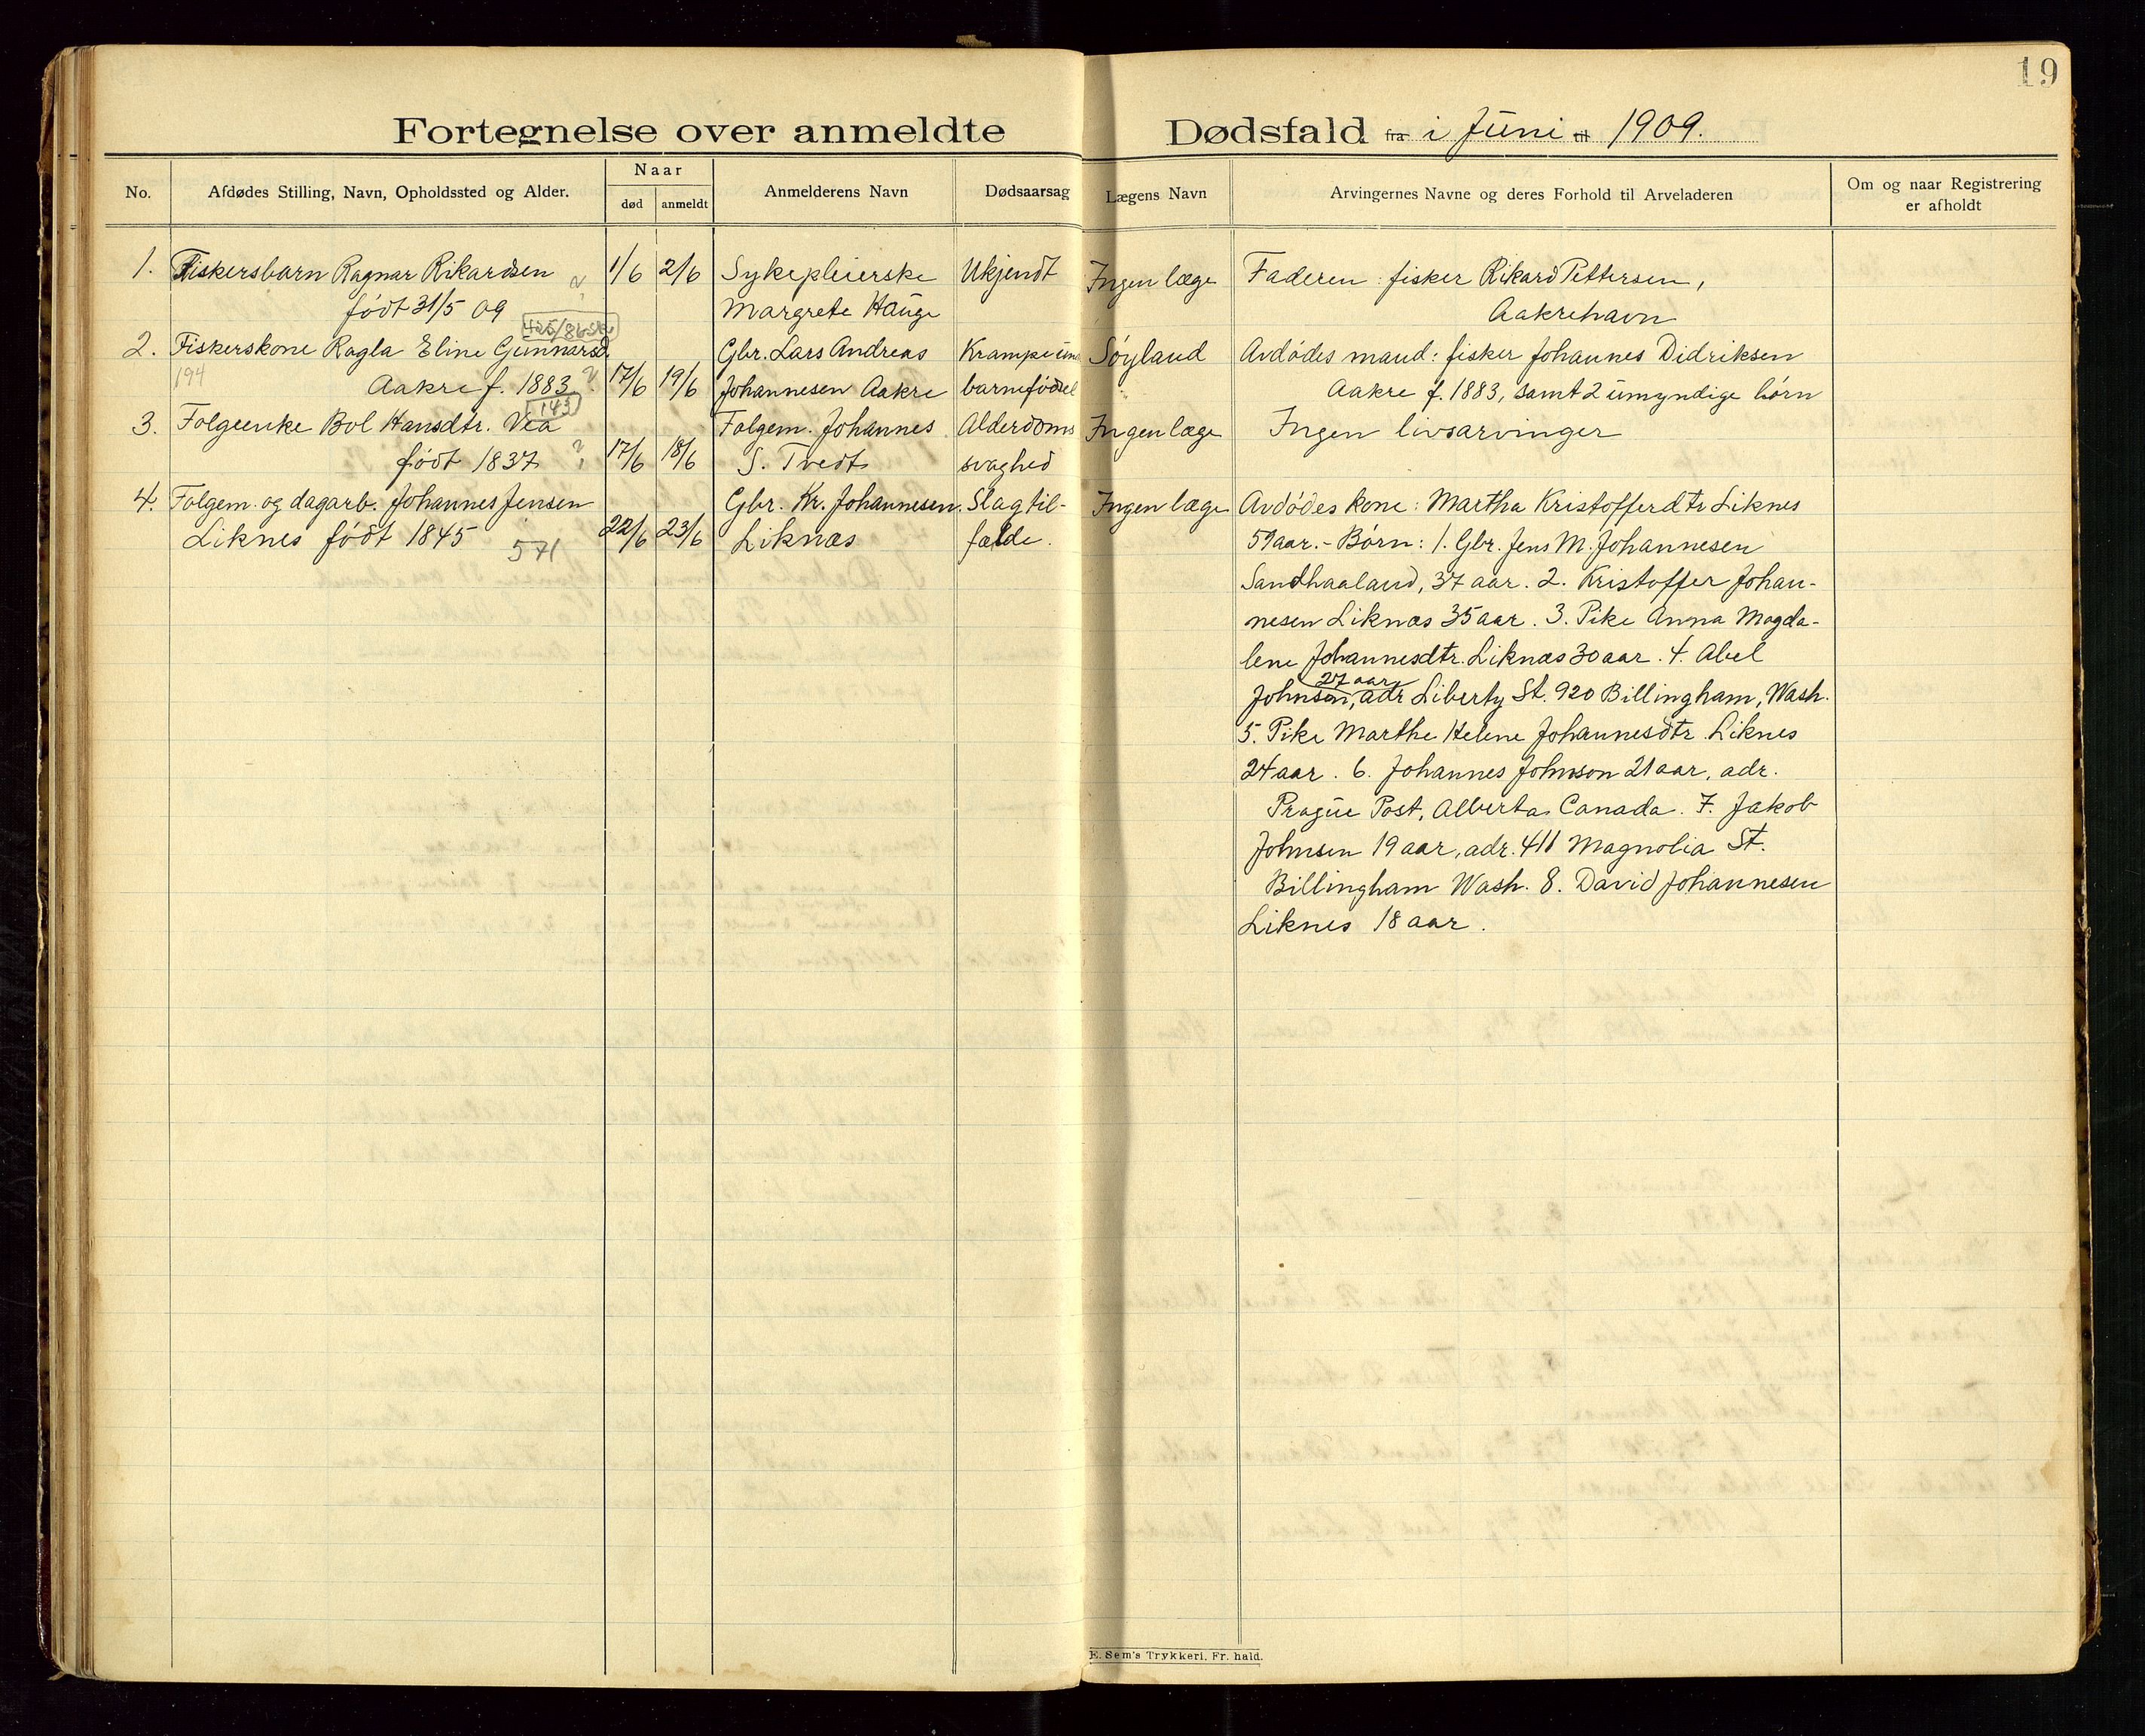 19
Fortegnelse over anmeldte Dødsfald fra i Juni til 1909.
No. Afdødes Stilling, Navn, Opholdssted og Alder. Naar død anmeldt Anmelderens Navn Dødsaarsag Lægens Navn Arvingernes Navne og deres Forhold til Arveladeren Om og naar Registrering er afholdt
1. Fiskersbarn Ragnar Rikardsen 1/6 2/6 Sykepleierske Ukjendt Ingen læge Faderen: fisker Rikard Pettersen,
født 31/5 09 Margrete Hauge Aakrehavn
2. Fiskerskone Ragla Eline Gunnarsd. Gbr. Lars Andreas Krampe und Søyland Avdødes mand: fisker Johannes Didriksen
194 Aakre f. 1883 ? 17/6 19/6 Johannesen Aakre barnefødsel Aakre f. 1883, samt 2 umyndige børn
143
3. Folgeenke Bol Hansdtr. Vea Folgem. Johannes Alderdoms Ingen læge Ingen livsarvinger
født 1837 ? 17/6 18/6 S. Tvedt svaghed
4. Folgem. og dagarb. Johannes Jensen Gbr. Kr. Johannesen Slagtil- Ingen læge Avdødes kone: Martha Kristofferdtr Liknes
Liknes født 1845 571 22/6 23/6 Liknæs fælde. 59 aar. - Børn: 1. Gbr. Jens M. Johannesen
Sandhaaland, 37 aar. 2. Kristoffer Johan-
nesen Liknæs 35 aar. 3. Pike Anna Magda-
lene Johannesdtr. Liknæs 30 aar. 4. Abel
27 aar
Johnson, adr Liberty St. 920 Billingham, Wash.
5. Pike Marthe Helene Johannesdtr Liknes
24 aar. 6. Johannes Johnson 21 aar, adr.
Prague Post, Alberta Canada. 7. Jakob
Johnsen 19 aar, adr. 411 Magnolia St.
Billingham Wash. 8. David Johannesen
Liknes 18 aar.
E. Sem's Trykkeri, Fr. hald.